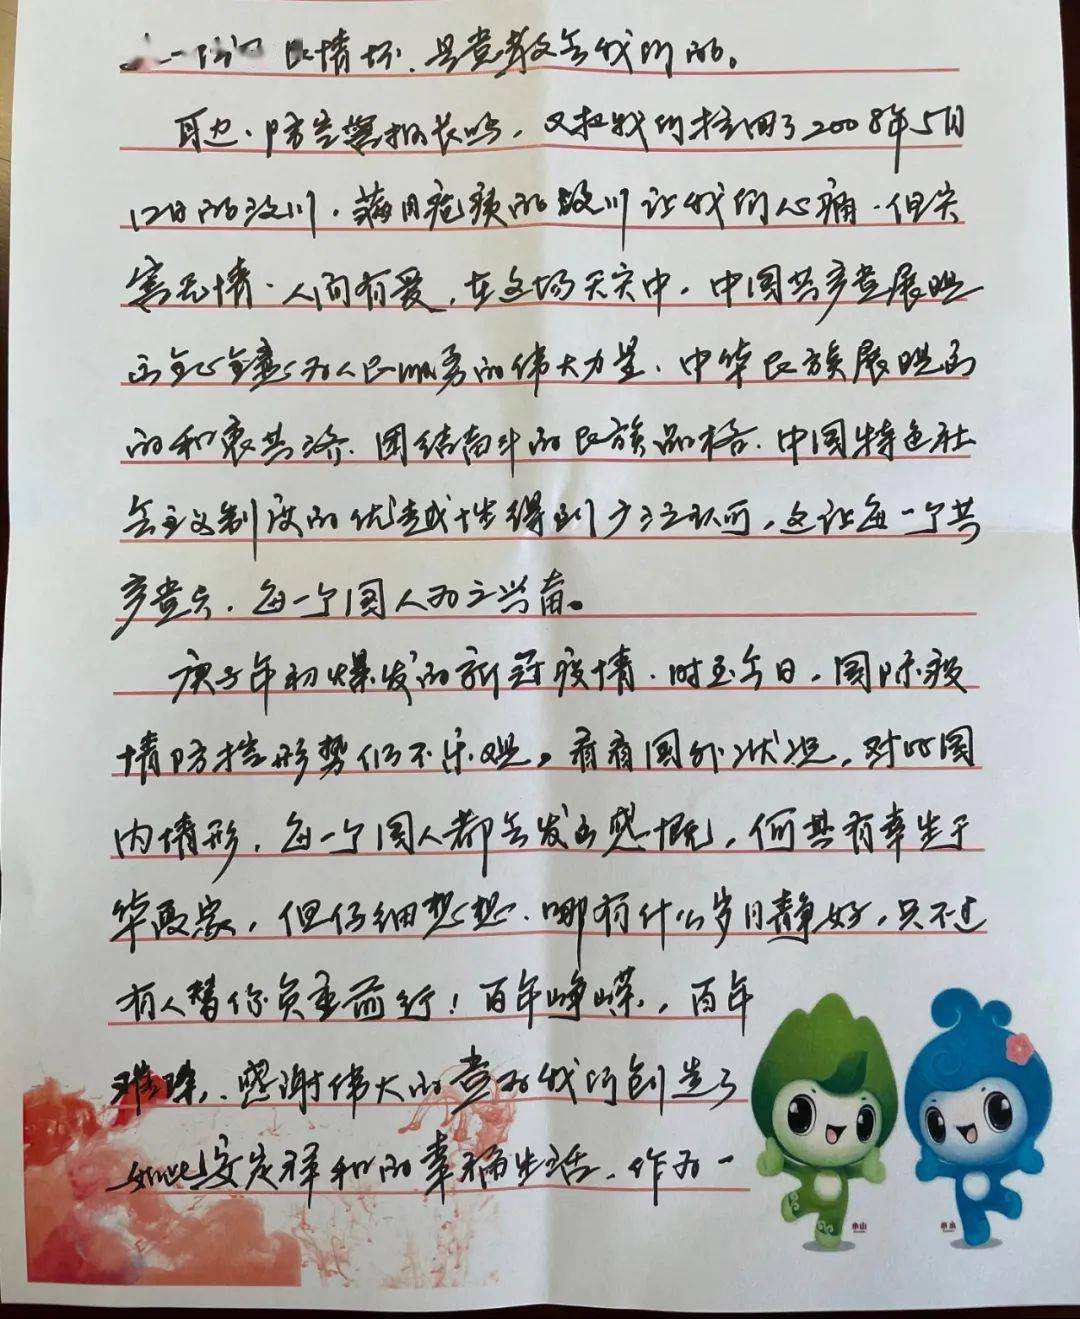 情怀，是党教会我们的。
耳边，防空警报长鸣，又把我们拉回了2008年5月
12日的汶川，满目疮痍的汶川让我们心痛，但灾
害无情，人间有爱，在这场天灾中，中国共产党展现
出全心全意为人民服务的伟大力量，中华民族展现出
的和衷共济、团结奋斗的民族品格，中国特色社
会主义制度的优越性得到广泛认可，这让每一个共
产党员，每一个国人为之兴奋。
庚子年初爆发的新冠疫情，时至今日，国际疫
情防控形势仍不乐观。看看国外状况，对比国
内情形，每一个国人都会发出感慨，何其有幸生于
华夏家，但仔细想想，哪有什么岁月静好，只不过
有人替你负重前行！百年峥嵘，百年
，感谢伟大的党为我们创造了
如此安定祥和的幸福生活，作为一